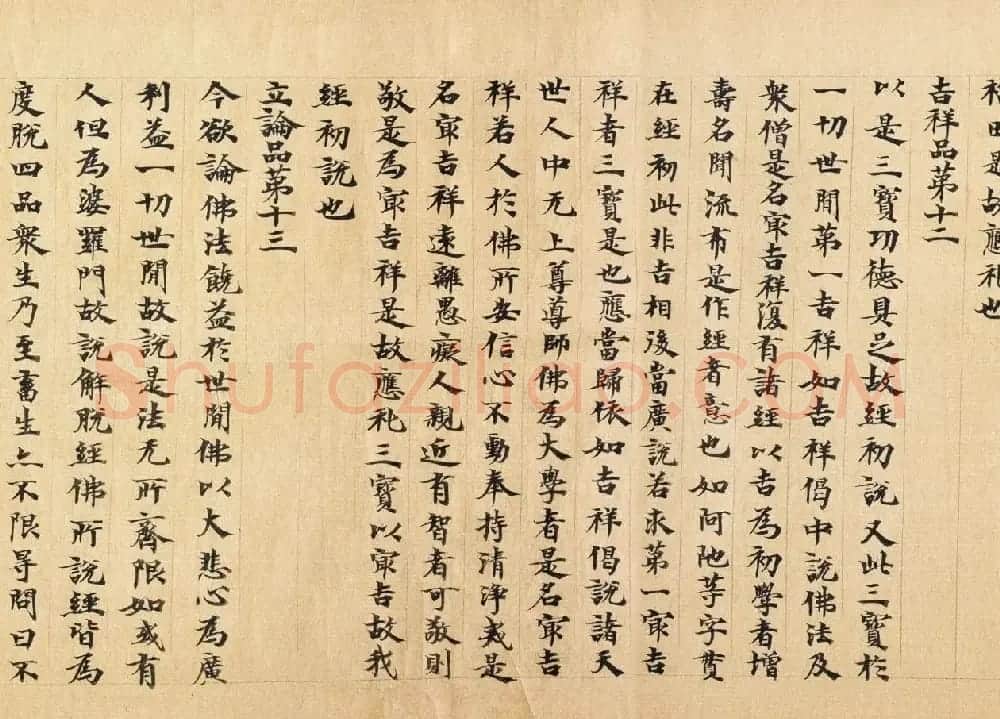 田是故應礼也
吉祥品第十二
以是三寶功德具足故經初說又此三寶於
一切世間第一吉祥如吉祥偈中說佛法及
衆僧是名冣吉祥復有諸經以吉為初學者增
壽名聞流布是作經者意也如阿阤等字贊
在經初此非吉相後當廣說若求第一冣吉
祥者三寶是也應當歸依如吉祥偈說諸天
世人中无上尊尊師佛為大學者是名冣吉
祥若人於佛所安信心不動奉持清淨戒是
名冣吉祥遠離愚癡人親近有智者可敬則
敬是為冣吉祥是故應礼三寶以冣吉故我
經初說也
立論品第十三
今欲論佛法饒益於世間佛以大悲心為廣
利益一切世間故說是法无所齊限如或有
人但為婆羅門故說解脫經佛所說經皆為
度脫四品衆生乃至畜生亦不限㝵問曰不
Shufaziliao.com